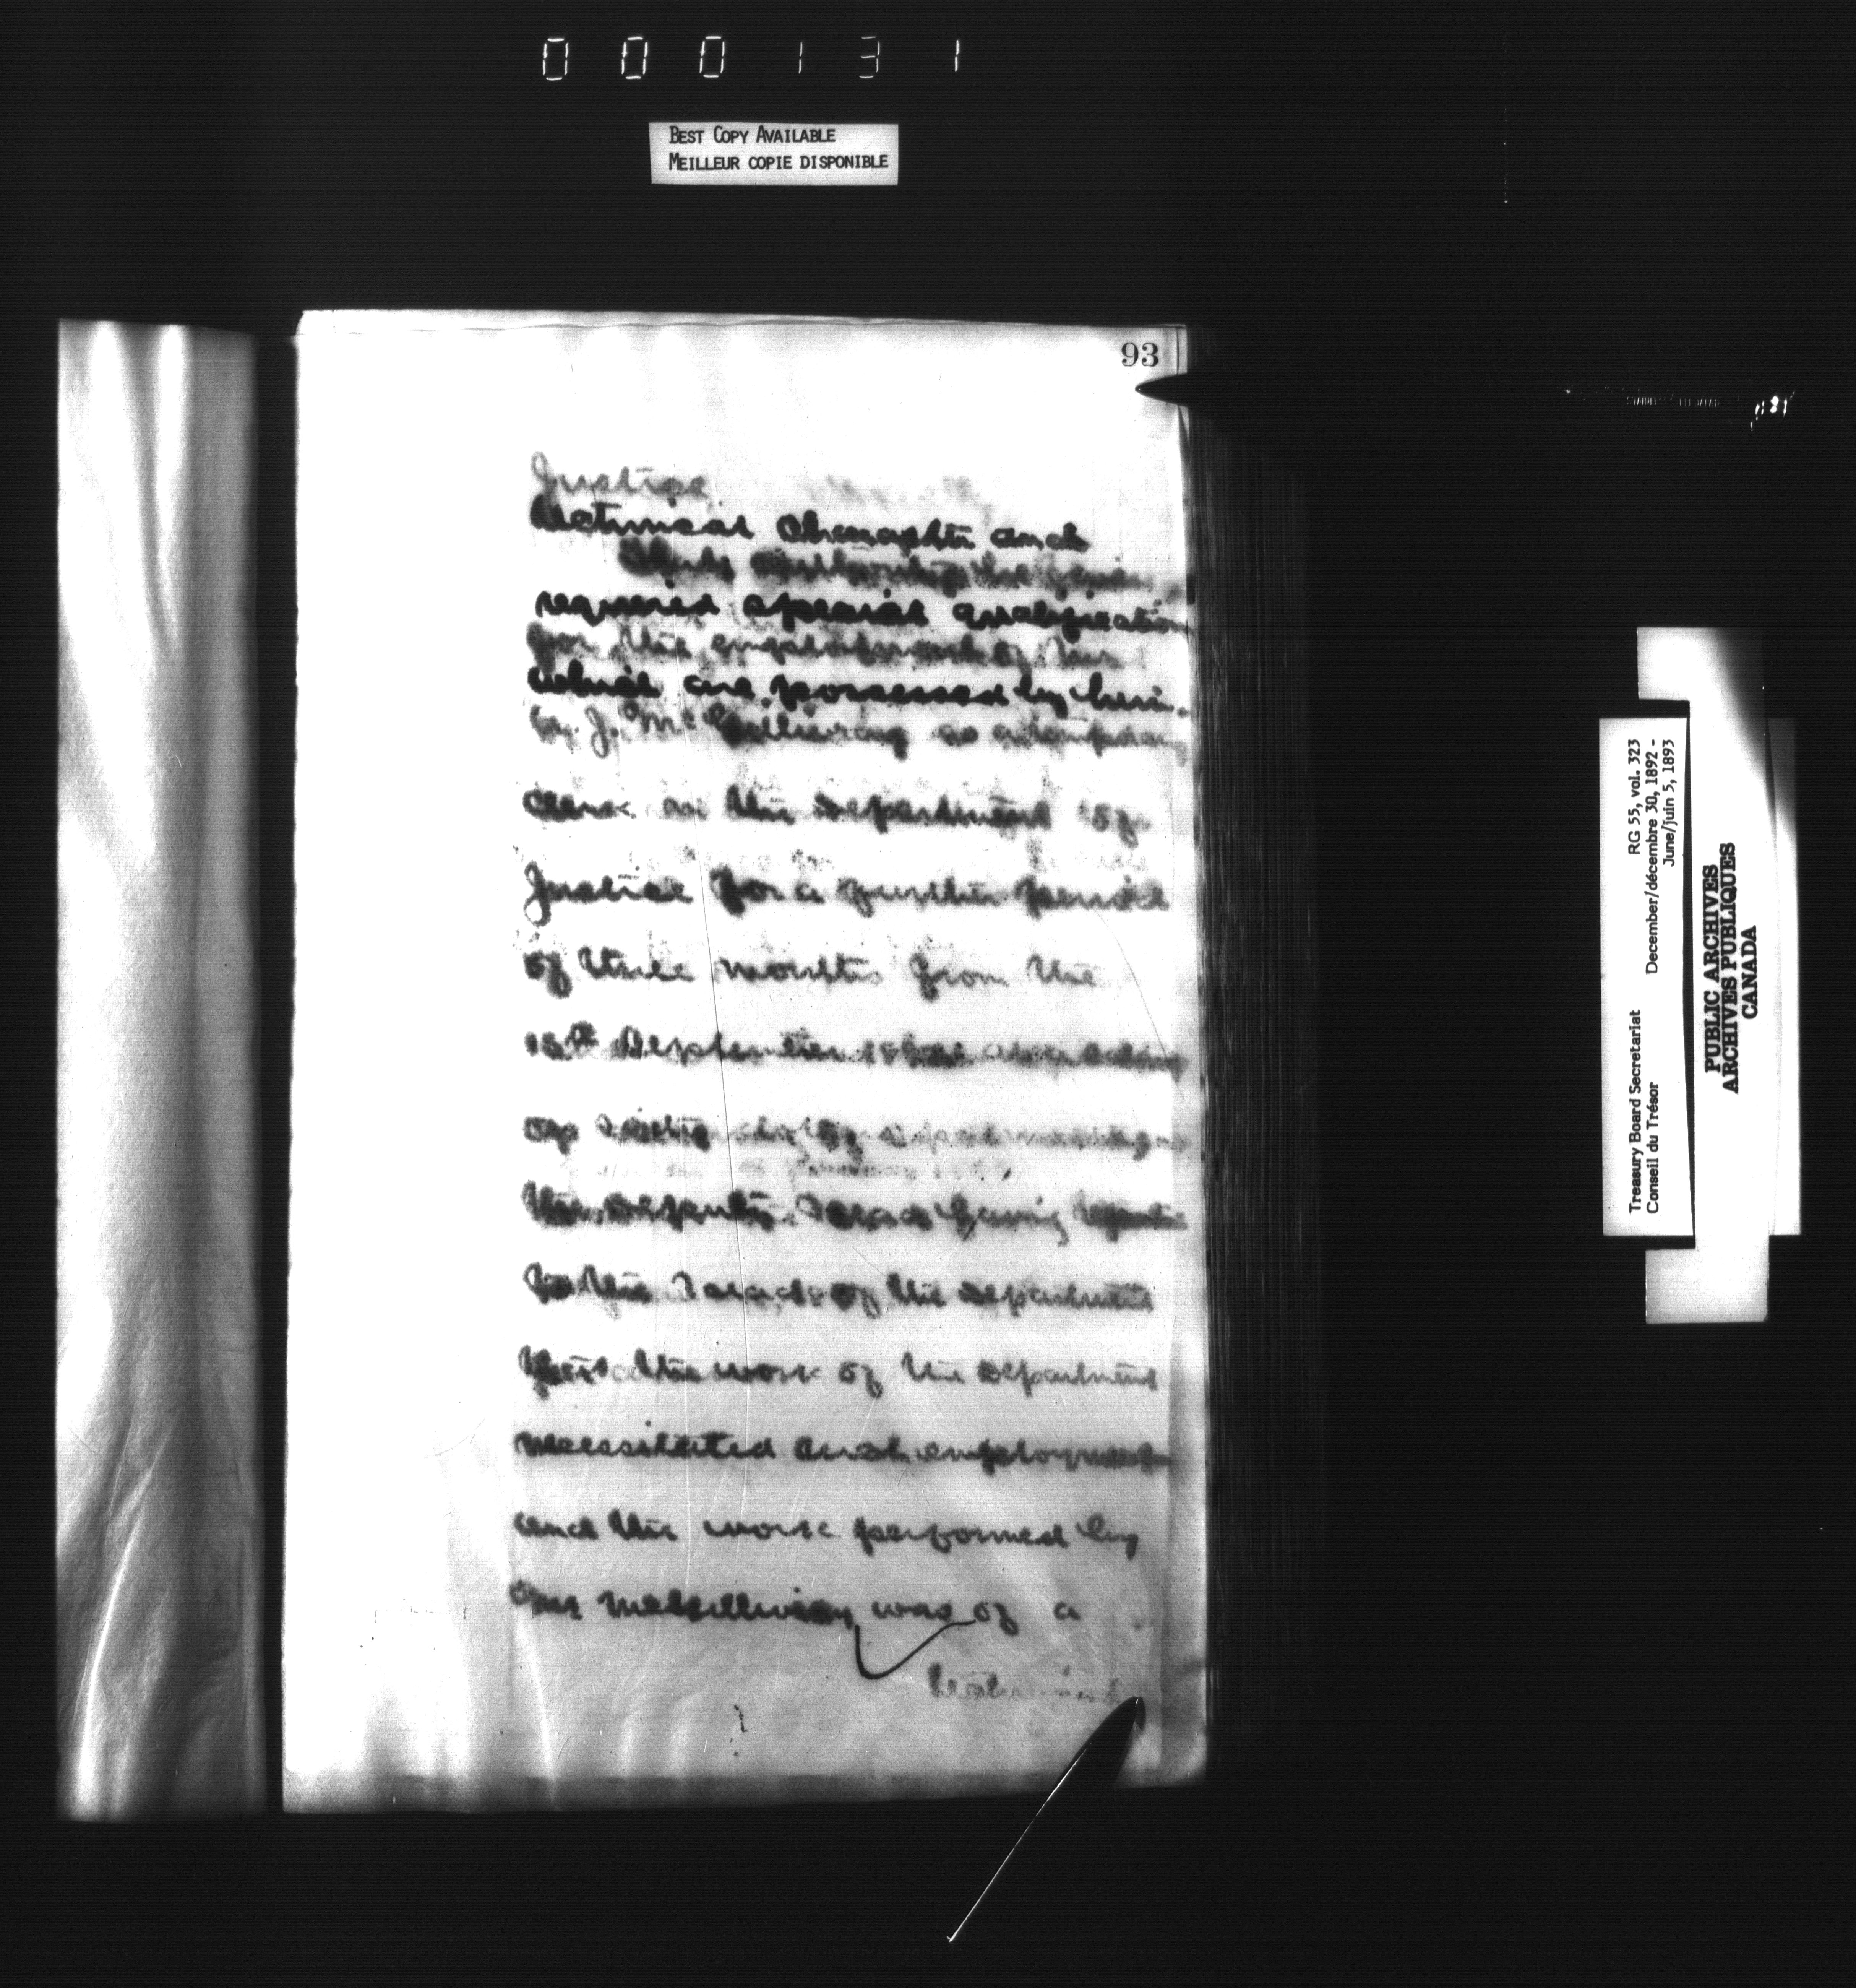 000131
BEST COPY AVAILABLE
MEILLEUR COPIE DISPONIBLE
93
Justice
technical character and
That authority be given
required special qualification
for the employment of Mr
which are possessed by him.
J. McGillivray as a temporary
clerk in the Department of
Justice for a further period
of three months from the
15th September
of
the Deputy Head having
to the Head of the Department
that the work of the Department
necessitated such employment
and the work performed by
Mr McGillivray was of a
technical
Treasury Board Secretariat RG 55, vol. 323
Conseil du Trésor December/décembre 30, 1892 -
June/juin 5, 1893
PUBLIC ARCHIVES
ARCHIVES PUBLIQUES
CANADA